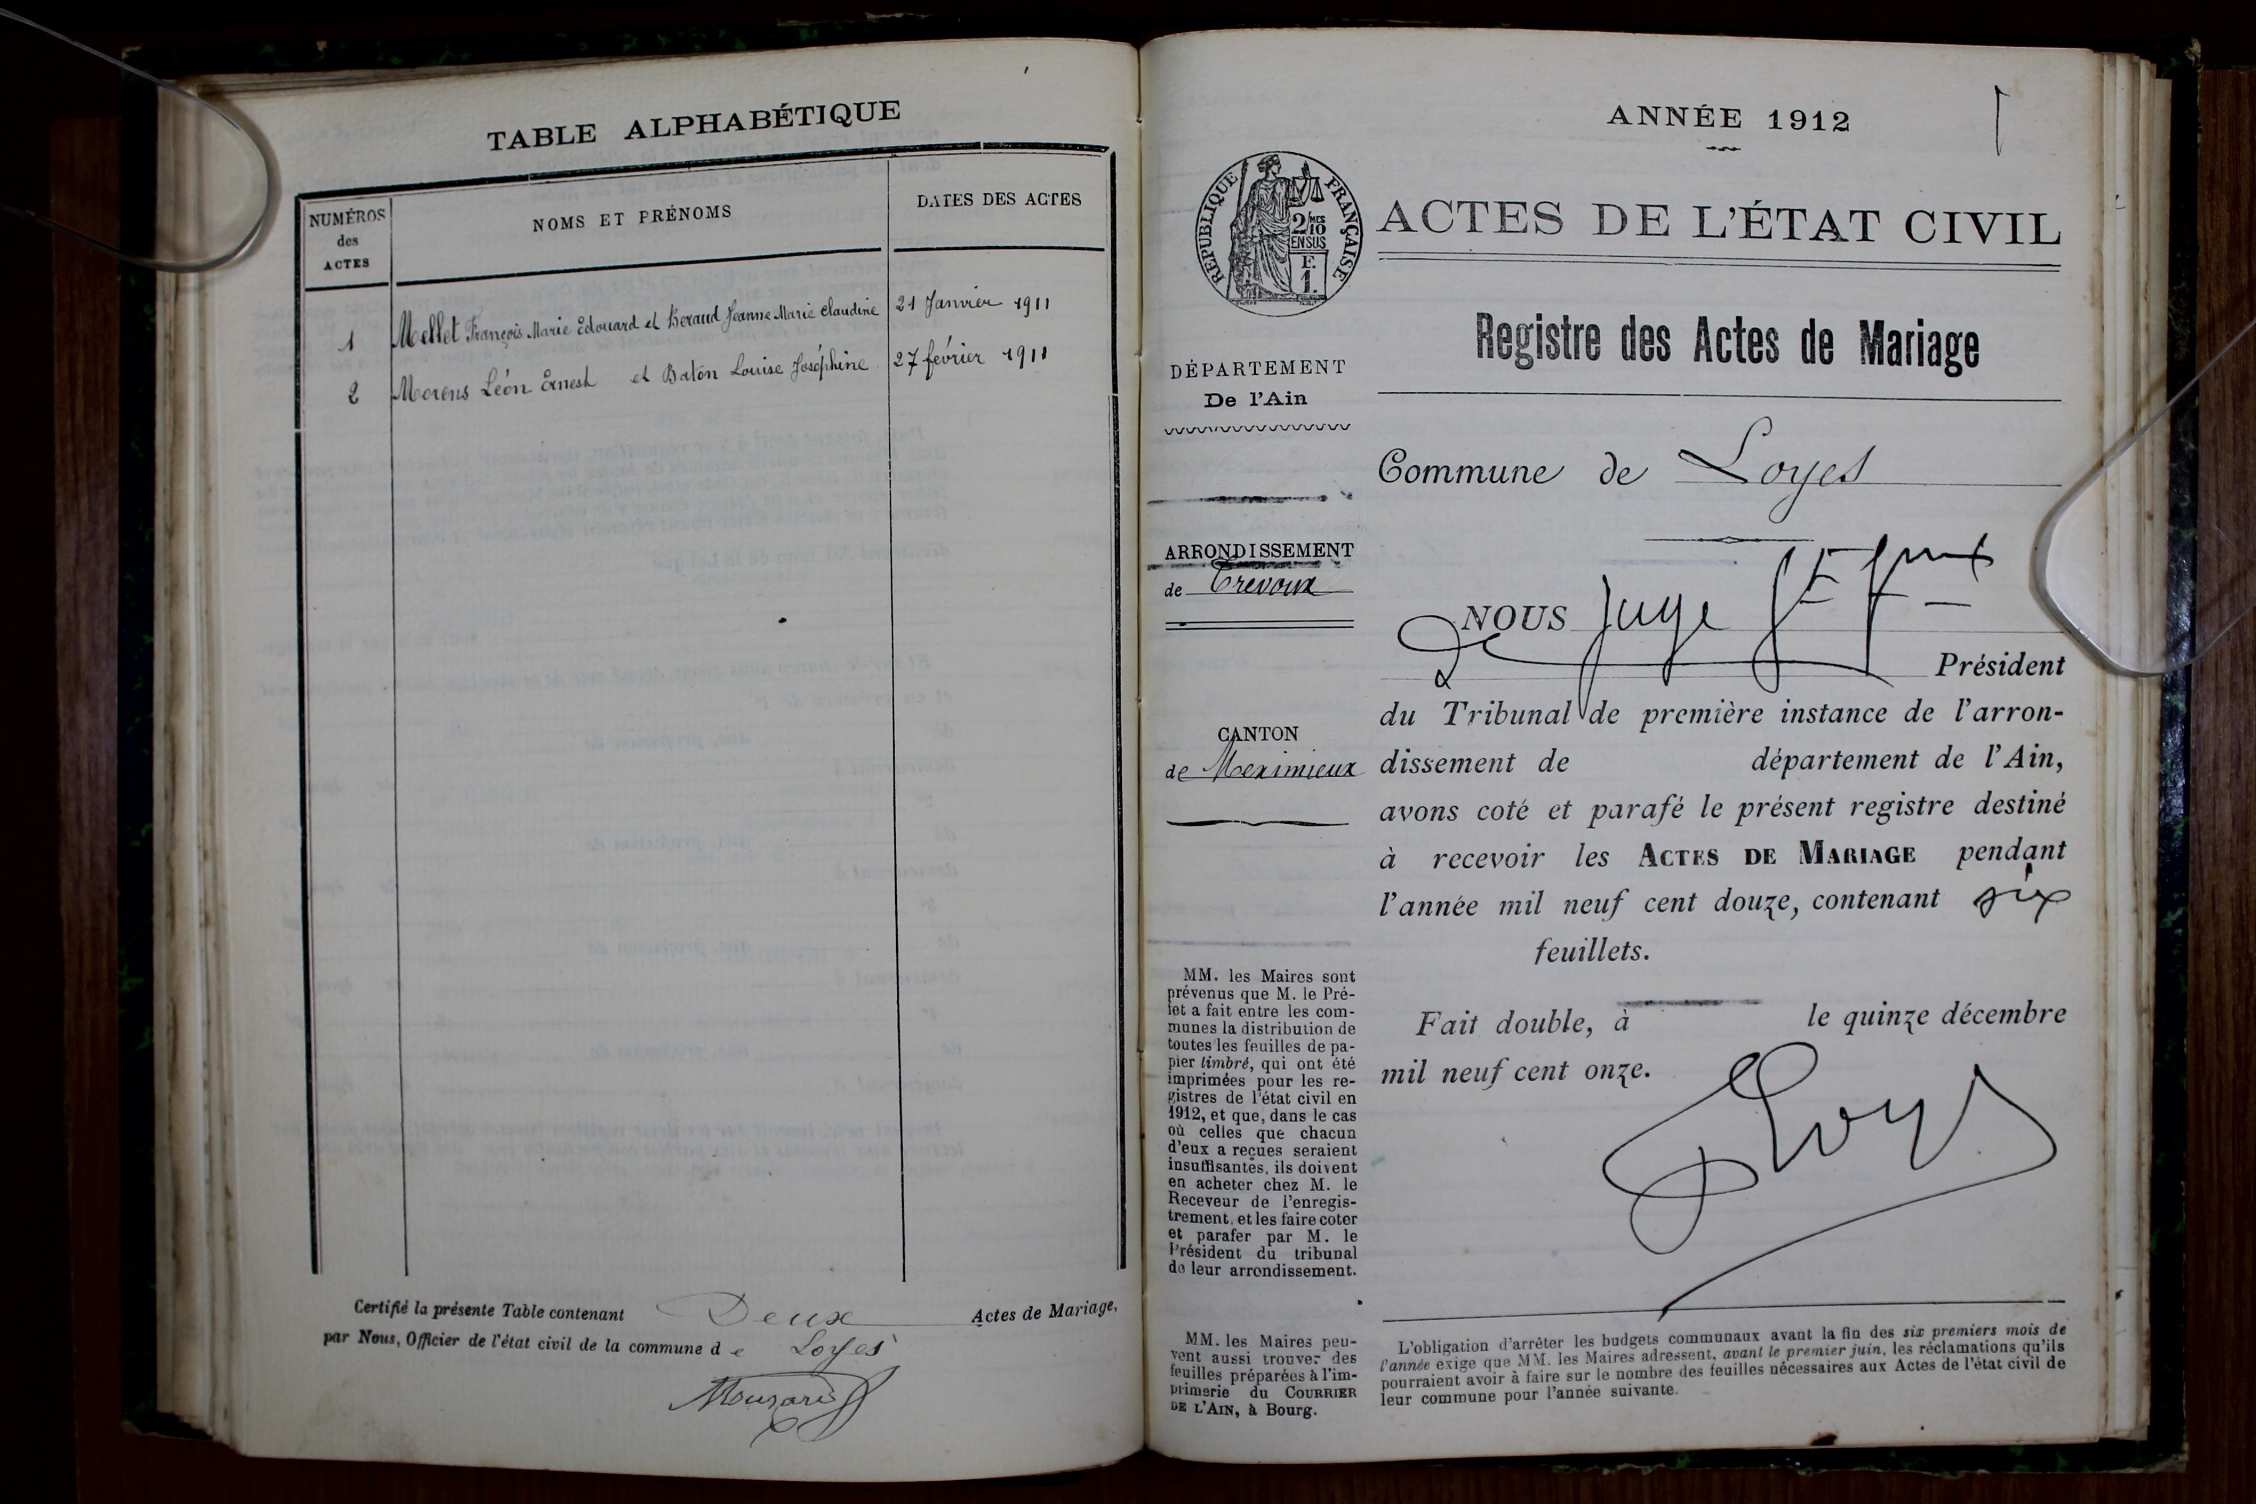 TABLE ALPHABÉTIQUE
NUMÉROS
des
ACTES
NOMS ET PRÉNOMS
DATES DES ACTES
1 Mellet François Marie Edouard et Beraud Jeanne Marie Claudine 21 Janvier 1911
2 Morens Léon Ernest et Baton Louise Joséphine 27 février 1911
Certifié la présente Table contenant Deux Actes de Mariage,
par Nous, Officier de l'état civil de la commune de Loyes
ANNÉE 1912
RÉPUBLIQUE FRANÇAISE
2/10
EN SUS
F.
1.
ACTES DE L'ÉTAT CIVIL
Registre des Actes de Mariage
DÉPARTEMENT
De l'Ain
ARRONDISSEMENT
de Trévoux
CANTON
de Meximieux
MM. les Maires sont
prévenus que M. le Pré-
fet a fait entre les com-
munes la distribution de
toutes les feuilles de pa-
pier timbré, qui ont été
imprimées pour les re-
gistres de l'état civil en
1912, et que, dans le cas
où celles que chacun
d'eux a reçues seraient
insuffisantes, ils doivent
en acheter chez M. le
Receveur de l'enregis-
trement, et les faire coter
et parafer par M. le
Président du tribunal
de leur arrondissement.
MM. les Maires peu-
vent aussi trouver des
feuilles préparées à l'im-
primerie du COURRIER
DE L'AIN, à Bourg.
Commune de Loyes
NOUS Juge
Président
du Tribunal de première instance de l'arron-
dissement de département de l'Ain,
avons coté et parafé le présent registre destiné
à recevoir les ACTES DE MARIAGE pendant
l'année mil neuf cent douze, contenant six
feuillets.
Fait double, à le quinze décembre
mil neuf cent onze.
L'obligation d'arrêter les budgets communaux avant la fin des six premiers mois de
l'année exige que MM. les Maires adressent, avant le premier juin, les réclamations qu'ils
pourraient avoir à faire sur le nombre des feuilles nécessaires aux Actes de l'état civil de
leur commune pour l'année suivante.